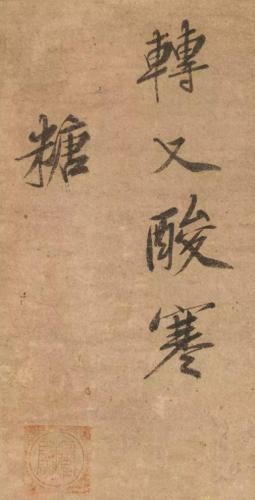 轉又酸寒
糖